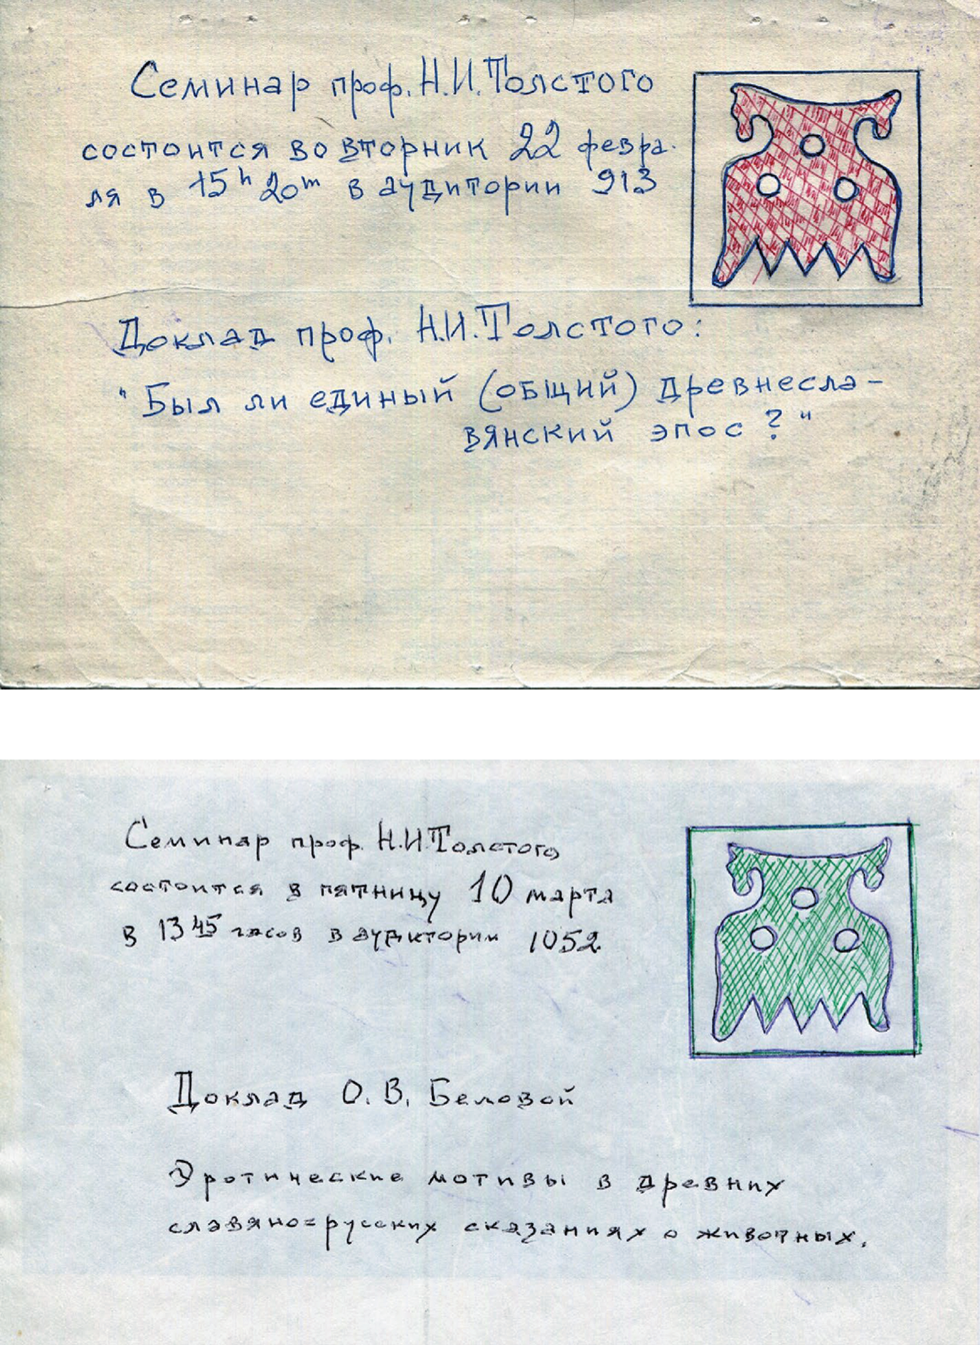 Семинар проф. Н.И.Толстого
состоится во вторник 22 февра-
ля в 15h 20m в аудитории 913
Доклад проф. Н.И.Толстого:
"Был ли единый (общий) древнесла-
вянский эпос?"
Семинар проф. Н.И.Толстого
состоится в пятницу 10 марта
в 13 45 часов в аудитории 1052
Доклад О. В. Беловой
Эротические мотивы в древних
славяно=русских сказаниях о животных.